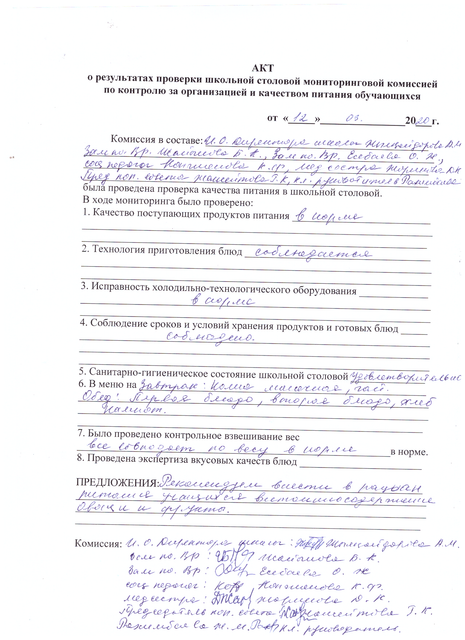 АКТ
о результатах проверки школьной столовой мониторинговой комиссией
по контролю за организацией и качеством питания обучающихся
от «12» 03. 2020г.
Комиссия в составе: И.О. Директора школы
Зам по Вр. Шайбанова Б. К., Зам по. Вр. Есебаева О. Ж,
соц педагог мед сестра
Пред поп. совета Т.К, кл. руководитель
была проведена проверка качества питания в школьной столовой.
В ходе мониторинга было проверено:
1. Качество поступающих продуктов питания в норме
2. Технология приготовления блюд соблюдается
3. Исправность холодильно-технологического оборудования
в норме
4. Соблюдение сроков и условий хранения продуктов и готовых блюд
соблюдено.
5. Санитарно-гигиеническое состояние школьной столовой
6. В меню на Завтрак: Каша молочная, чай.
Обед: Первое блюдо, второе блюдо, хлеб
7. Было проведено контрольное взвешивание вес
все совпадает по весу в норме в норме.
8. Проведена экспертиза вкусовых качеств блюд
ПРЕДЛОЖЕНИЯ: Рекомендуем ввести в рацион
питания учащихся витаминосодержащие
овощи и фрукты.
Комиссия: И.О. Директора школы: А.М.
зам по. Вр: Б. К.
Зам по. Вр: Есебаева О. Ж
соц педагог: К.
медсестра: Д. К.
Председатель поп. совета Т. К.
Ж. М. кл. руководитель.